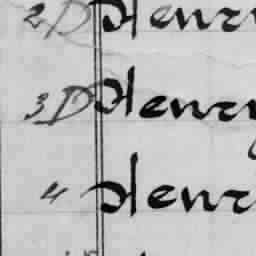 2 D Henry
3 D Henry
" Henr